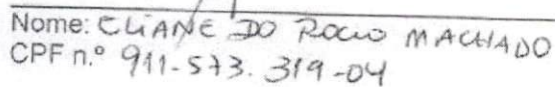 Nome: ELIANE DO ROCIO MACHADO
CPF n.º 911-573.319-04